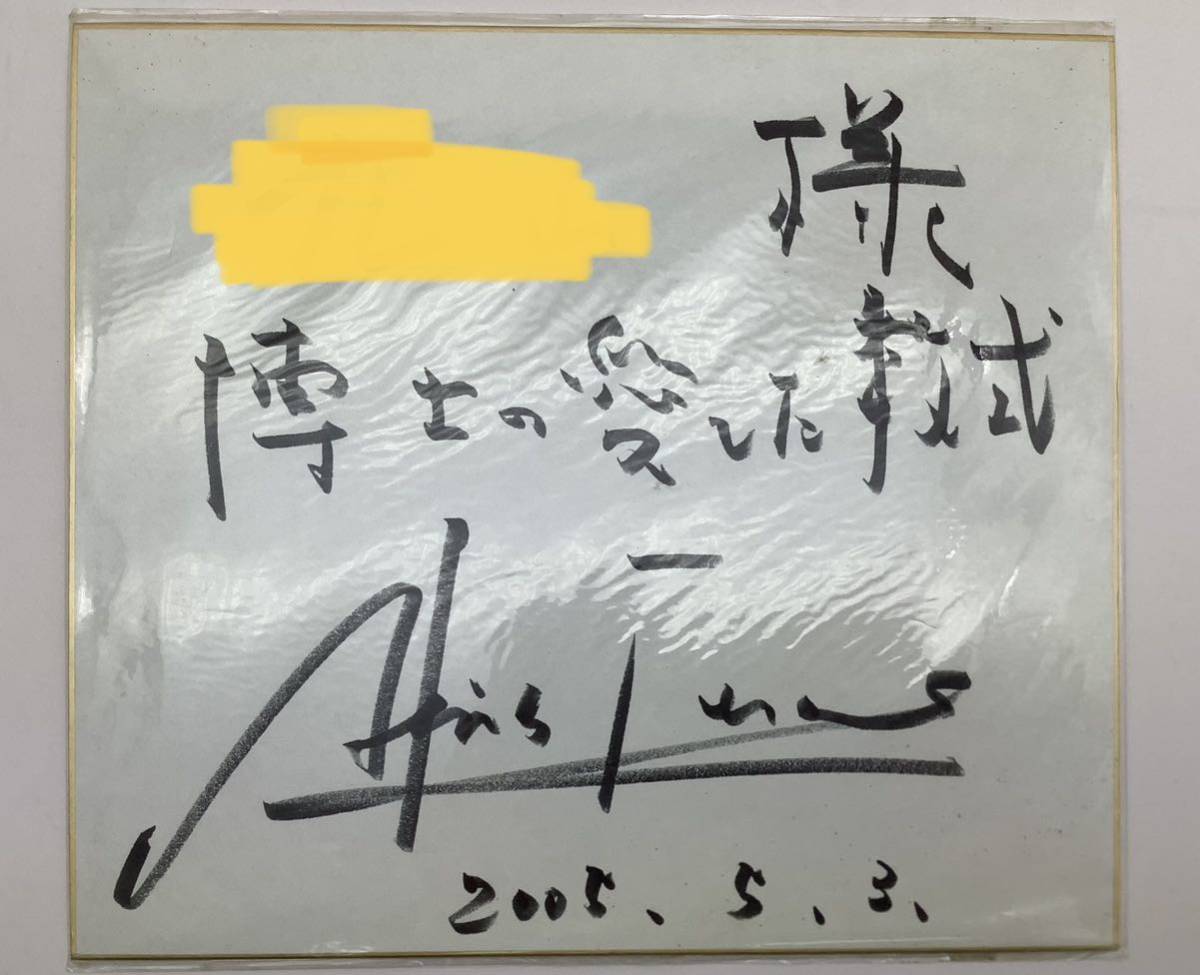 様
博士の愛した数式
2005. 5. 3.